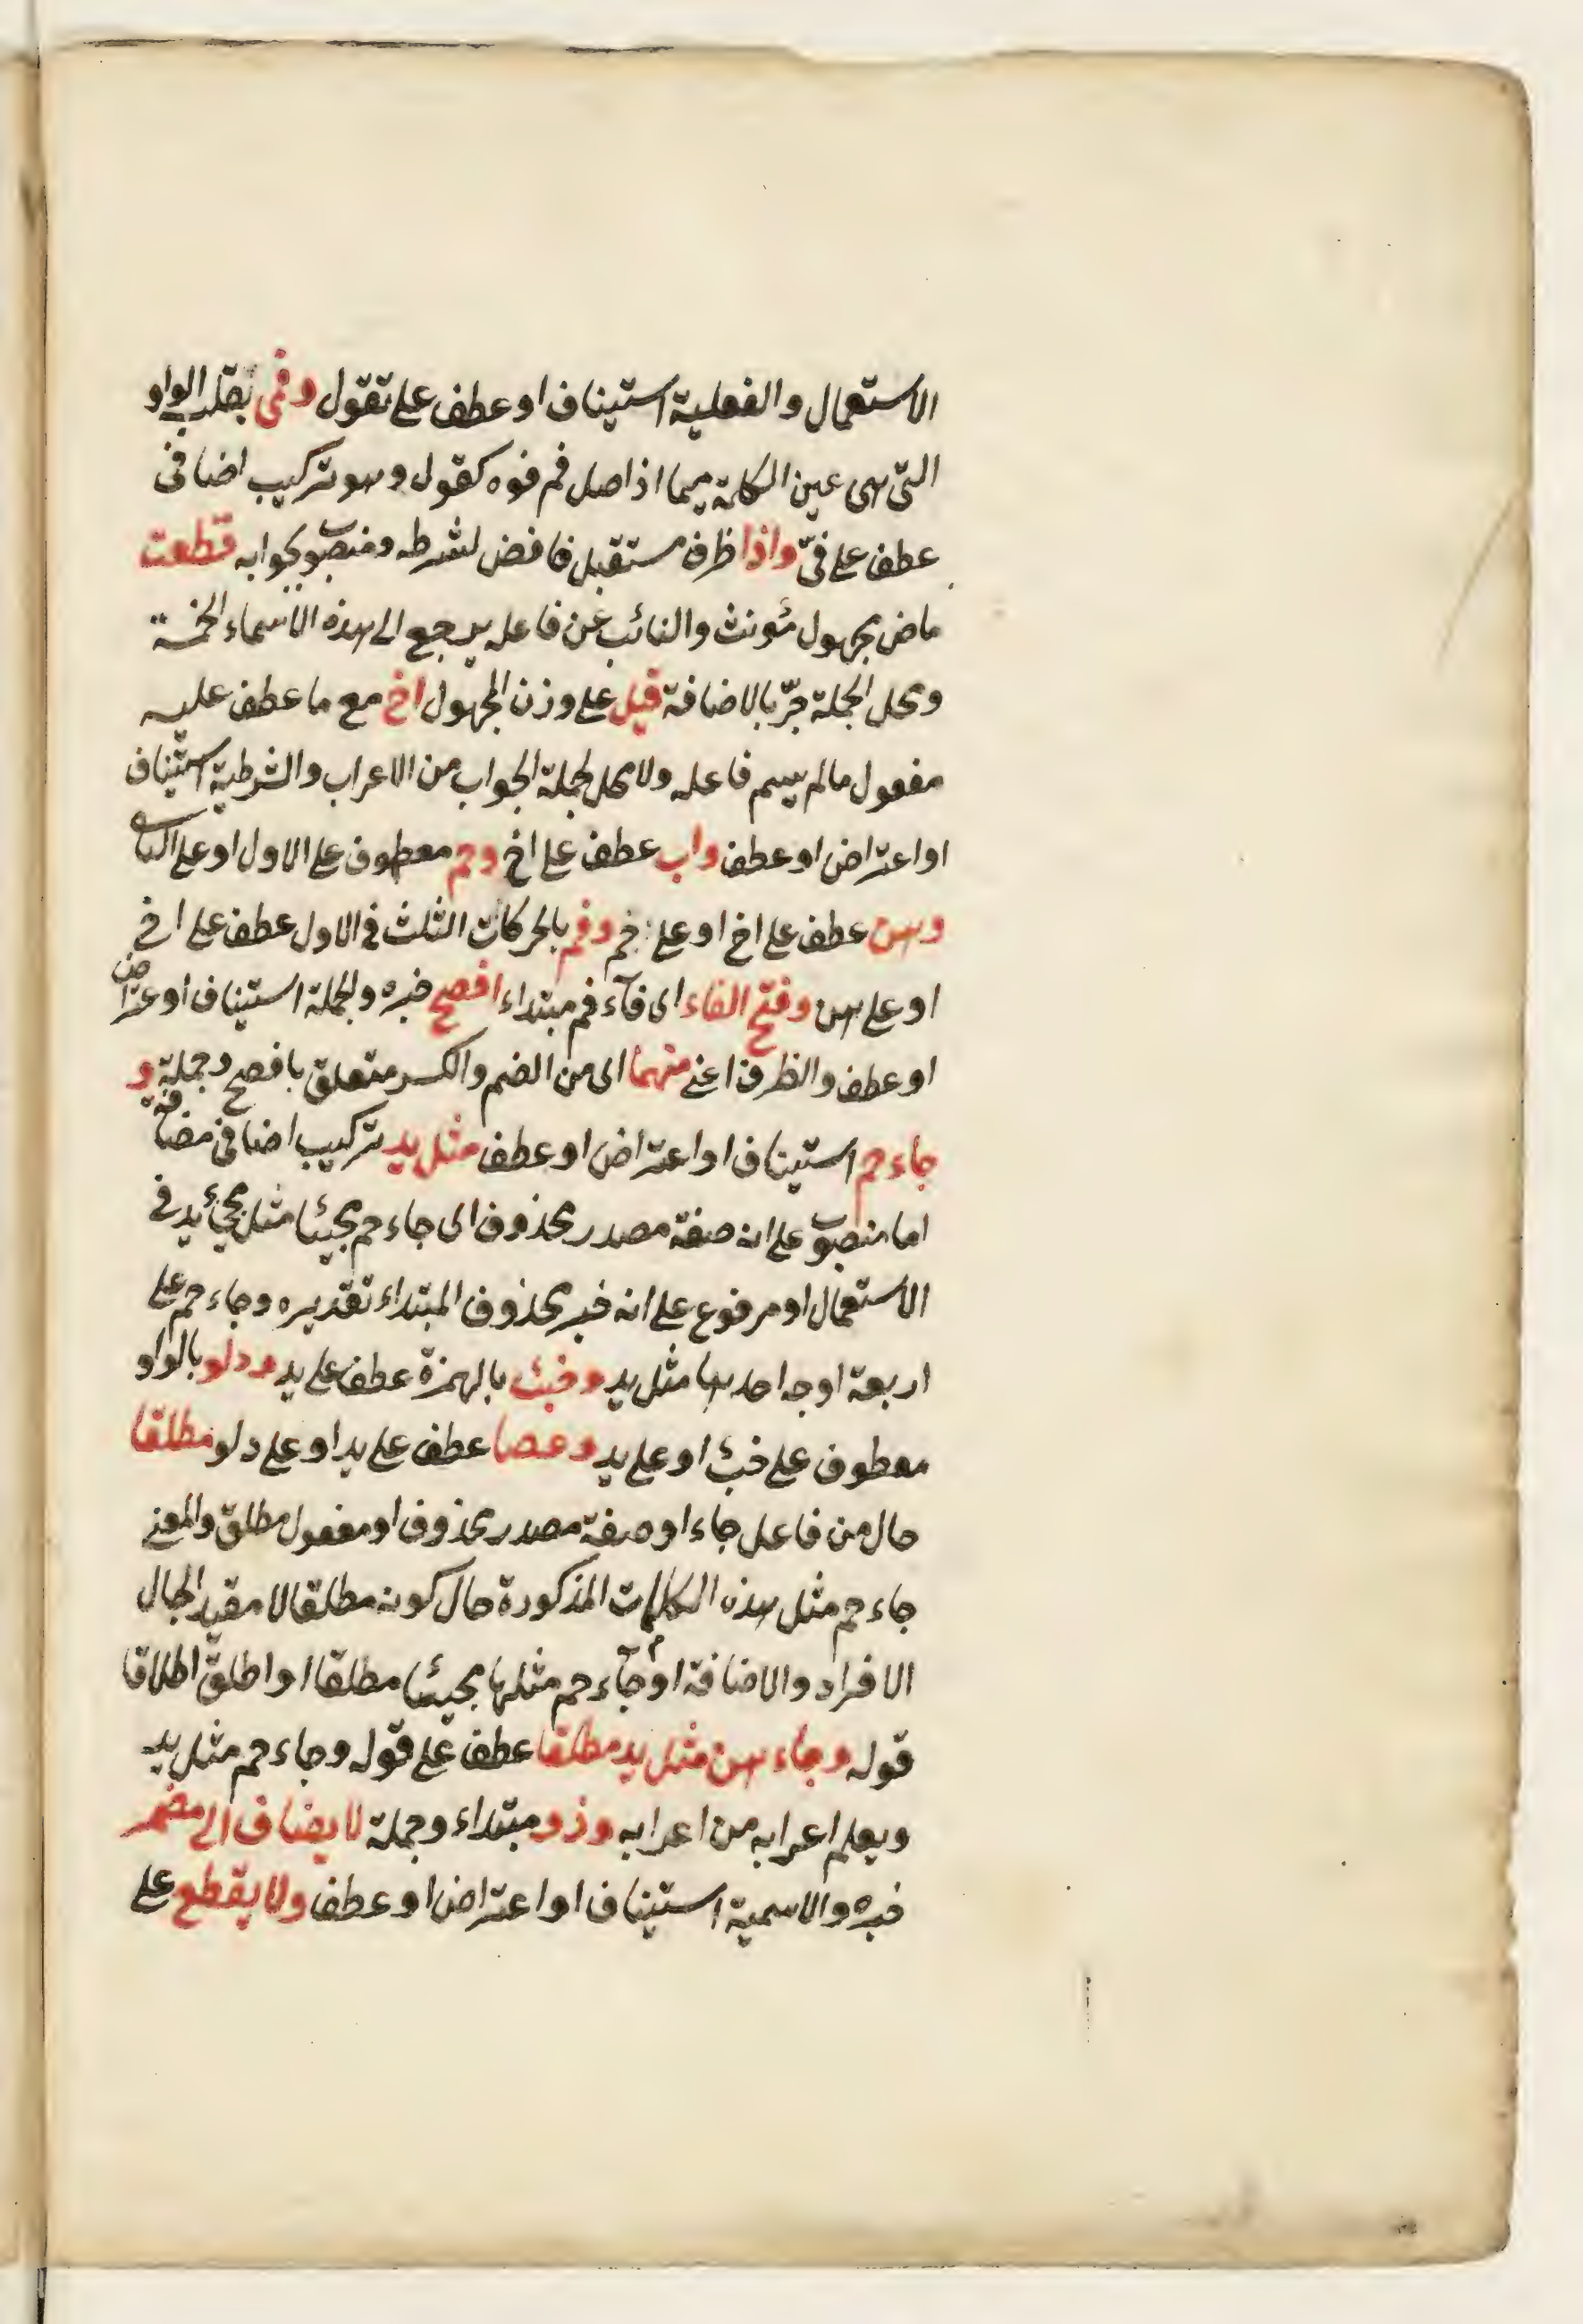 الاستعمال والفعلية استيناف او عطف على تقول وفمي بقلب الواو
التي هي عين الكلمة ميما اذ اصل فم فوه كقول وهو تركيب اضافي
عطف على فيّ واذا ظرف مستقبل خافض لشرطه ومنصوب بجوابه قطعت
ماض مجهول مؤنث والنائب عن فاعله يرجع الى هذه الاسماء الخمسة
ومحل الجملة جرّ بالاضافة قيل على وزن المجهول اخ مع ما عطف عليه
مفعول مالم يسم فاعله ولا محل لجملة الجواب من الاعراب والشرطية استيناف
او اعتراض او عطف واب عطف على اخ وحم معطوف على الاول او على الثاني
وهن عطف على اخ او على حم وفم بالحركات الثلث في الاول عطف على اخ
او على هن وفتح الفاء اى فآء فم مبتداء افصح خبره والجملة استيناف او اعتراض
او عطف والظرف اعني منهما اى من الضم والكسر متعلق بافصح وجملة و
جاء حم استيناف او اعتراض او عطف مثل يد تركيب اضافي مضافة
اما منصوب على انه صفة مصدر محذوف اى جاء حم مجيئا مثل مجيئ يد في
الاستعمال او مرفوع على انه خبر محذوف المبتداء تقديره وجاء حم على
اربعة اوجه احدها مثل يد وخبئ بالهمزة عطف على يد ودلو بالواو
معطوف على خبئ او على يد وعصا عطف على يد او على دلو مطلقا
حال من فاعل جاء او صفة مصدر محذوف او مفعول مطلق والمعنى
جاء حم مثل هذه الكلمات المذكورة حال كونه مطلقا لا مقيد الحال
الافراد والاضافة او جآء حم مثلها مجيئا مطلقا او اطلق اطلاقا
قوله وجاء هن مثل يد مطلقا عطف على قوله وجاء حم مثل يد
ويعلم اعرابه من اعرابه وذو مبتداء وجملة لا يضاف الى مضمر
خبره والاسمية استيناف او اعتراض او عطف ولا يقطع على